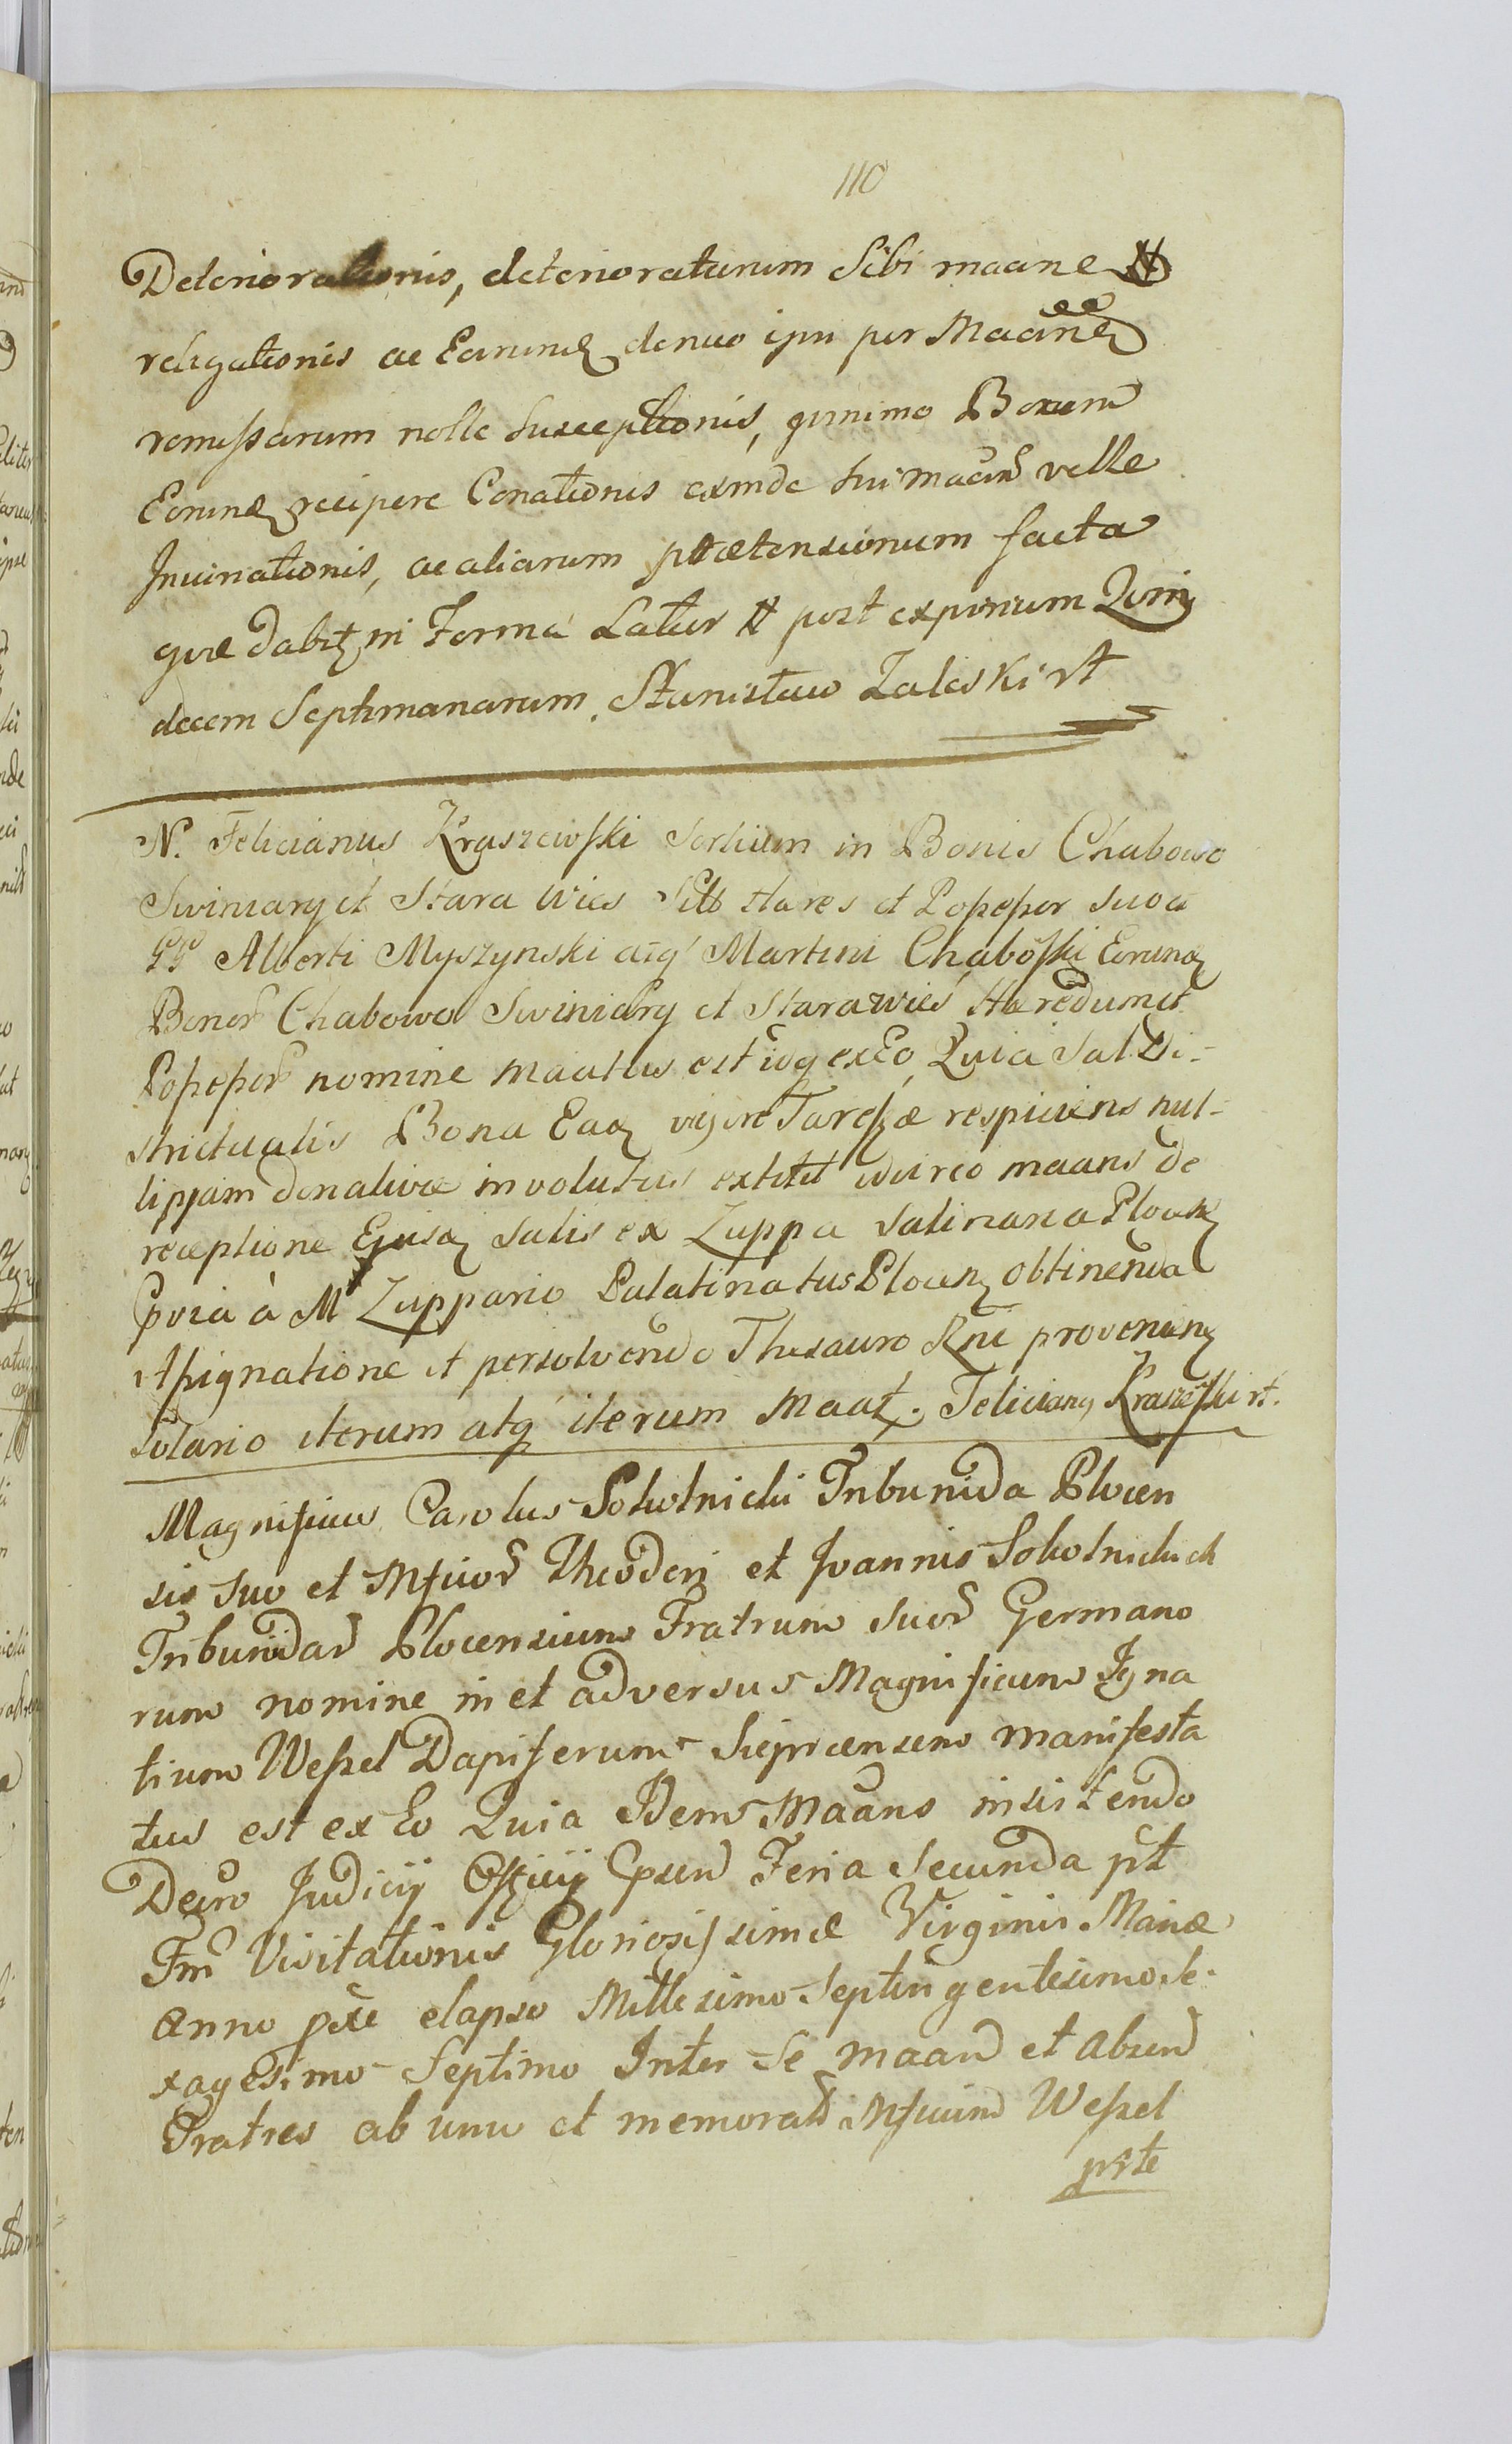 110
Deteriorationis, deterioratarum Sibi maane
religationis ac Earund denuo ipsi per Maane
remissarum nolle Susceptionis, quinimo Bonum
Eorund recipere Conationis exinde sui maan velle
Inuinationis, ac aliarum prætensionum facta
quæ dabit in Forma Latur post expirium Quin
decem Septimanarum. Stanisław Zaleski rt
N. Felicianus Kraszewski Sortium in Bonis Chabowo
Swiniary et Stara wies Hæres et Popepor suo a
GG Alberti Myszynski atq Martini Chaboski Eorund
Bonor Chabowo Swiniary et Starawies Hæredum et
Popepor nomine maatus est ex Eo, Quia Sal Di-
strictualis Bona Eaq vigore Tareffæ respiciens nul-
lipjam donative involutus extitit idcirco maans de
receptione Ejusq Salis ex Zuppa Salinaria Plocen
à M Zuppario Palatinatus Plocen obtinenda
Assignatione et persolvendo Thesauro Rni provenien
solario iterum atq iterum Maat. Felician Kraszewski rt.
Magnificus Carolus Sokolnicki Tribunida Plocen
sis suo et Mficor Theodori et Joannis Sokolnickich
Tribunidar Plocensium Fratrum Suor Germano
rum nomine in et adversus Magnificum Igna
tium Wessel Dapiferum Sieprcensem manifesta
tus est ex Eo Quia Idem Maans insistendo
Decro Judicij Officij Feria Secunda pt
Fm Visitationis Gloriosissimæ Virginis Mariæ
Anno pxe elapso Millesimo Septingentesimo Se-
xagesimo Septimo Inter Se maan et absen
Fratres ab uno et memorat Mficum Wessel
prte